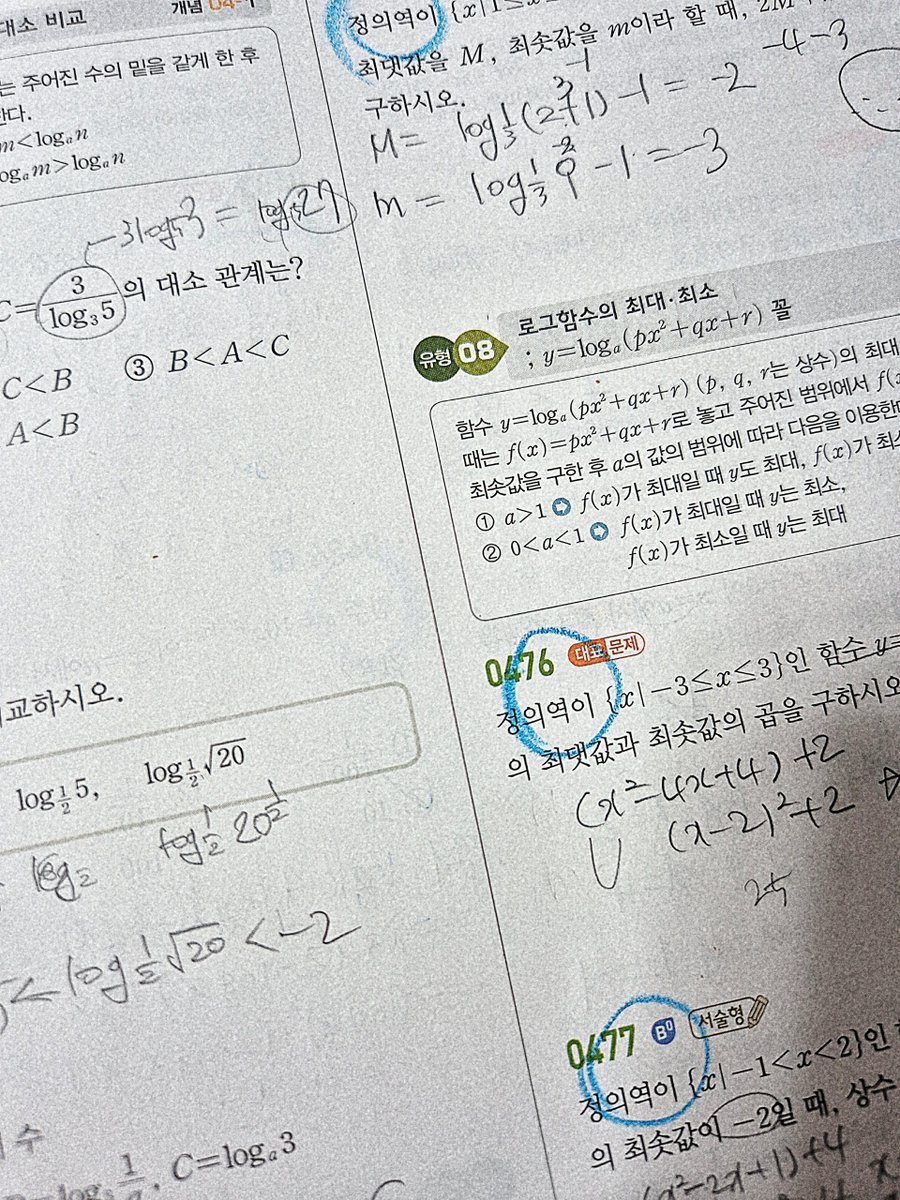 대소 비교
개념
는 주어진 수의 밑을 같게 한 후
한다.
m<logₐn
logₐm>logₐn
-3log₅3 = log₅27
C= 3/log₃5 의 대소 관계는?
C<B ③ B<A<C
A<B
교하시오.
log½5, log½√20
log½20^½
<log½√20<-2
수
C=logₐ3
정의역이 {x|1≤x
최댓값을 M, 최솟값을 m이라 할 때, 2M
구하시오.
-4-3
M= log⅓(2+1)-1=-2
m= log⅓9-1=-3
유형 08 로그함수의 최대·최소
; y=logₐ(px²+qx+r) 꼴
함수 y=logₐ(px²+qx+r) (p, q, r는 상수)의 최대
때는 f(x)=px²+qx+r로 놓고 주어진 범위에서
최솟값을 구한 후 a의 값의 범위에 따라 다음을
① a>1 ➡ f(x)가 최대일 때 y도 최대, f(x)가
② 0<a<1 ➡ f(x)가 최대일 때 y는 최소,
f(x)가 최소일 때 y는 최대
0476 대표 문제
정의역이 {x|-3≤x≤3}인 함수 y=
의 최댓값과 최솟값의 곱을 구하시오
(x²-4x+4)+2
(x-2)²+2
25
0477 B⁰ 서술형
정의역이 {x|-1<x<2}인
의 최솟값이 -2일 때, 상수
(x²-2x+1)+4